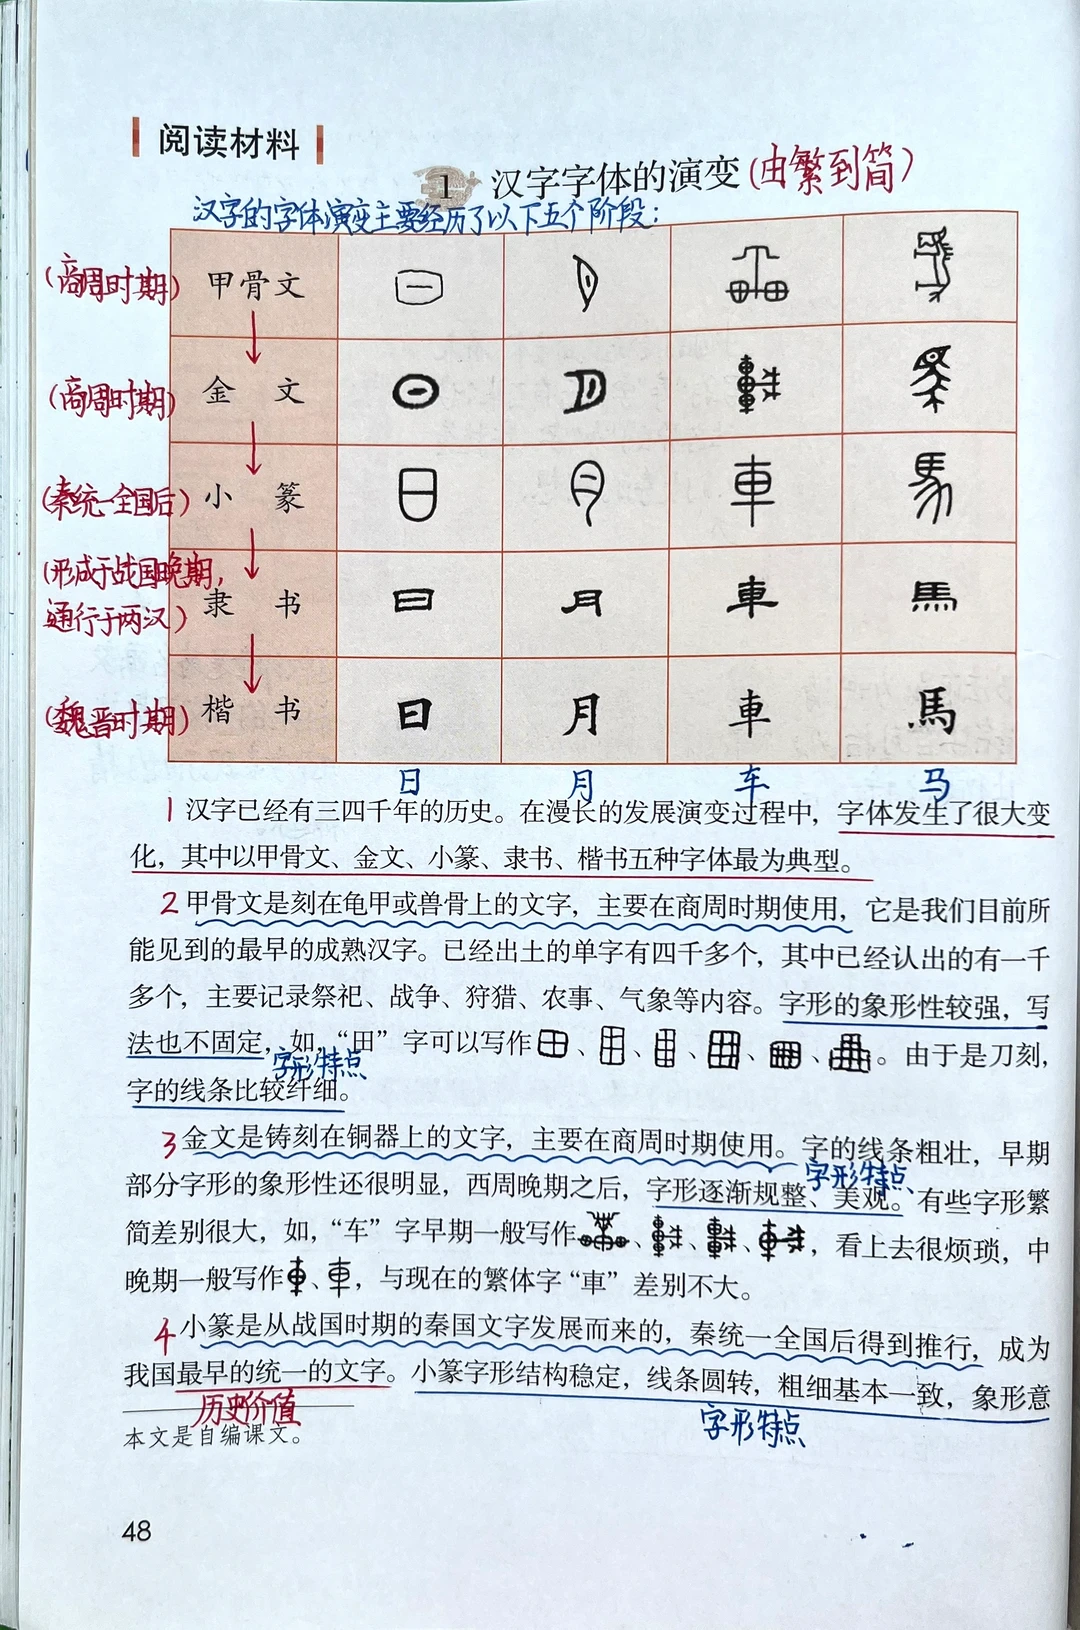 阅读材料
1 汉字字体的演变(由繁到简)
汉字的字体演变主要经历了以下五个阶段:
(商周时期) 甲骨文
(商周时期) 金 文
(秦统一全国后) 小 篆
(形成于战国晚期,
通行于两汉) 隶 书 日 月 車 馬
(魏晋时期) 楷 书 日 月 車 馬
日 月 车 马
1 汉字已经有三四千年的历史。在漫长的发展演变过程中，字体发生了很大变
化，其中以甲骨文、金文、小篆、隶书、楷书五种字体最为典型。
2 甲骨文是刻在龟甲或兽骨上的文字，主要在商周时期使用，它是我们目前所
能见到的最早的成熟汉字。已经出土的单字有四千多个，其中已经认出的有一千
多个，主要记录祭祀、战争、狩猎、农事、气象等内容。字形的象形性较强，写
法也不固定，如，“田”字可以写作、、、、、。由于是刀刻，
字形特点
字的线条比较纤细。
3 金文是铸刻在铜器上的文字，主要在商周时期使用。字的线条粗壮，早期
字形特点
部分字形的象形性还很明显，西周晚期之后，字形逐渐规整、美观。有些字形繁
简差别很大，如，“车”字早期一般写作、、、，看上去很烦琐，中
晚期一般写作、，与现在的繁体字“車”差别不大。
4 小篆是从战国时期的秦国文字发展而来的，秦统一全国后得到推行，成为
我国最早的统一的文字。小篆字形结构稳定，线条圆转，粗细基本一致，象形意
历史价值
字形特点
本文是自编课文。
48